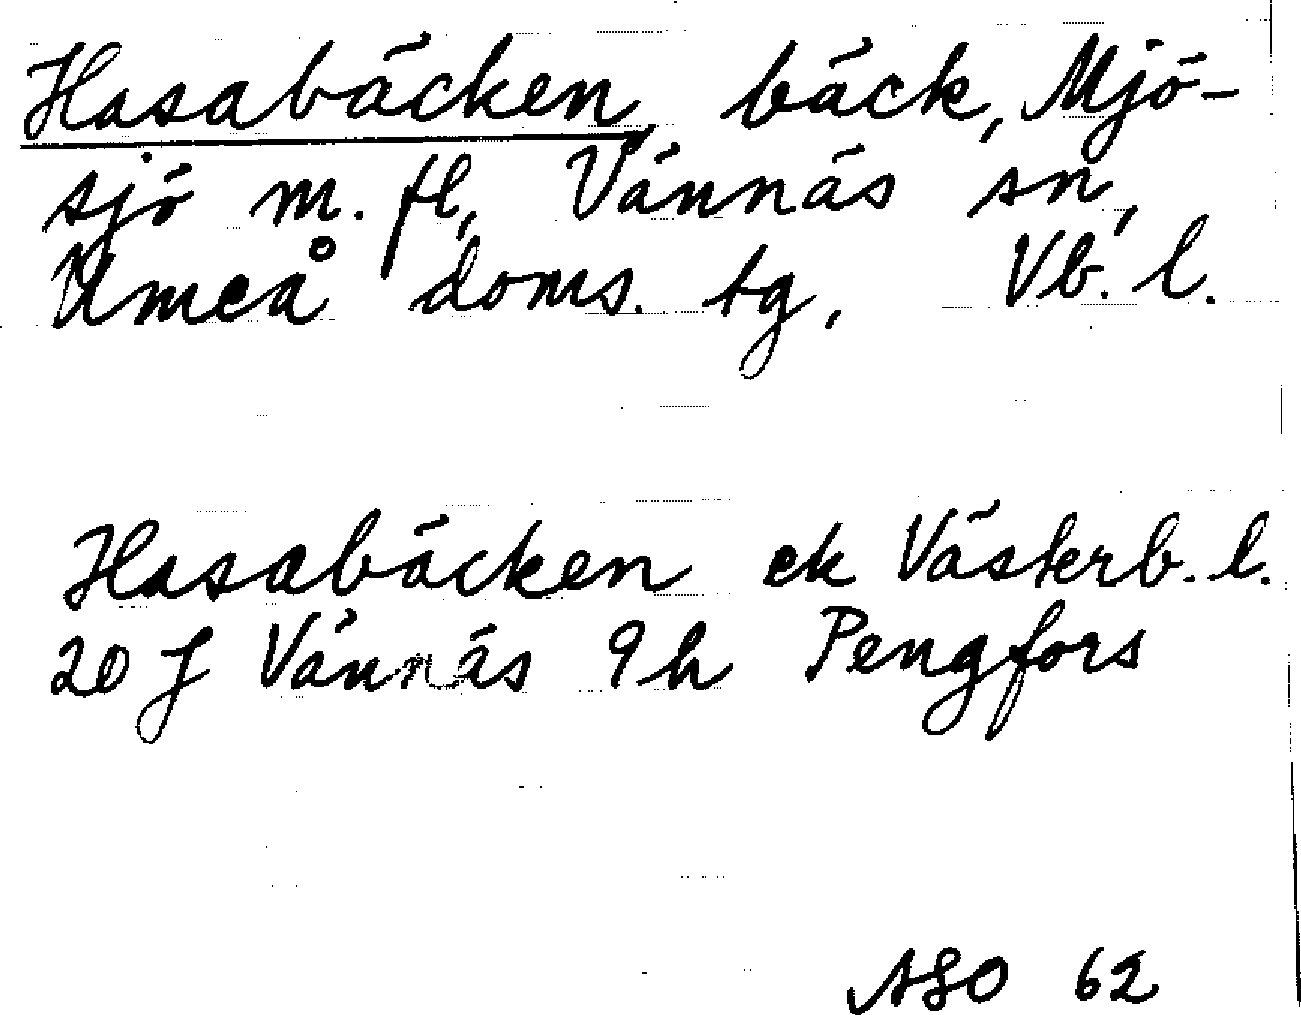 Hasabäcken, bäck, Mjö-
sjö m. fl, Vännäs sn,
Umeå doms. tg, Vb. l.
Hasabäcken ek Västerb. l.
20 J Vännäs 9h Pengfors
ASO 62